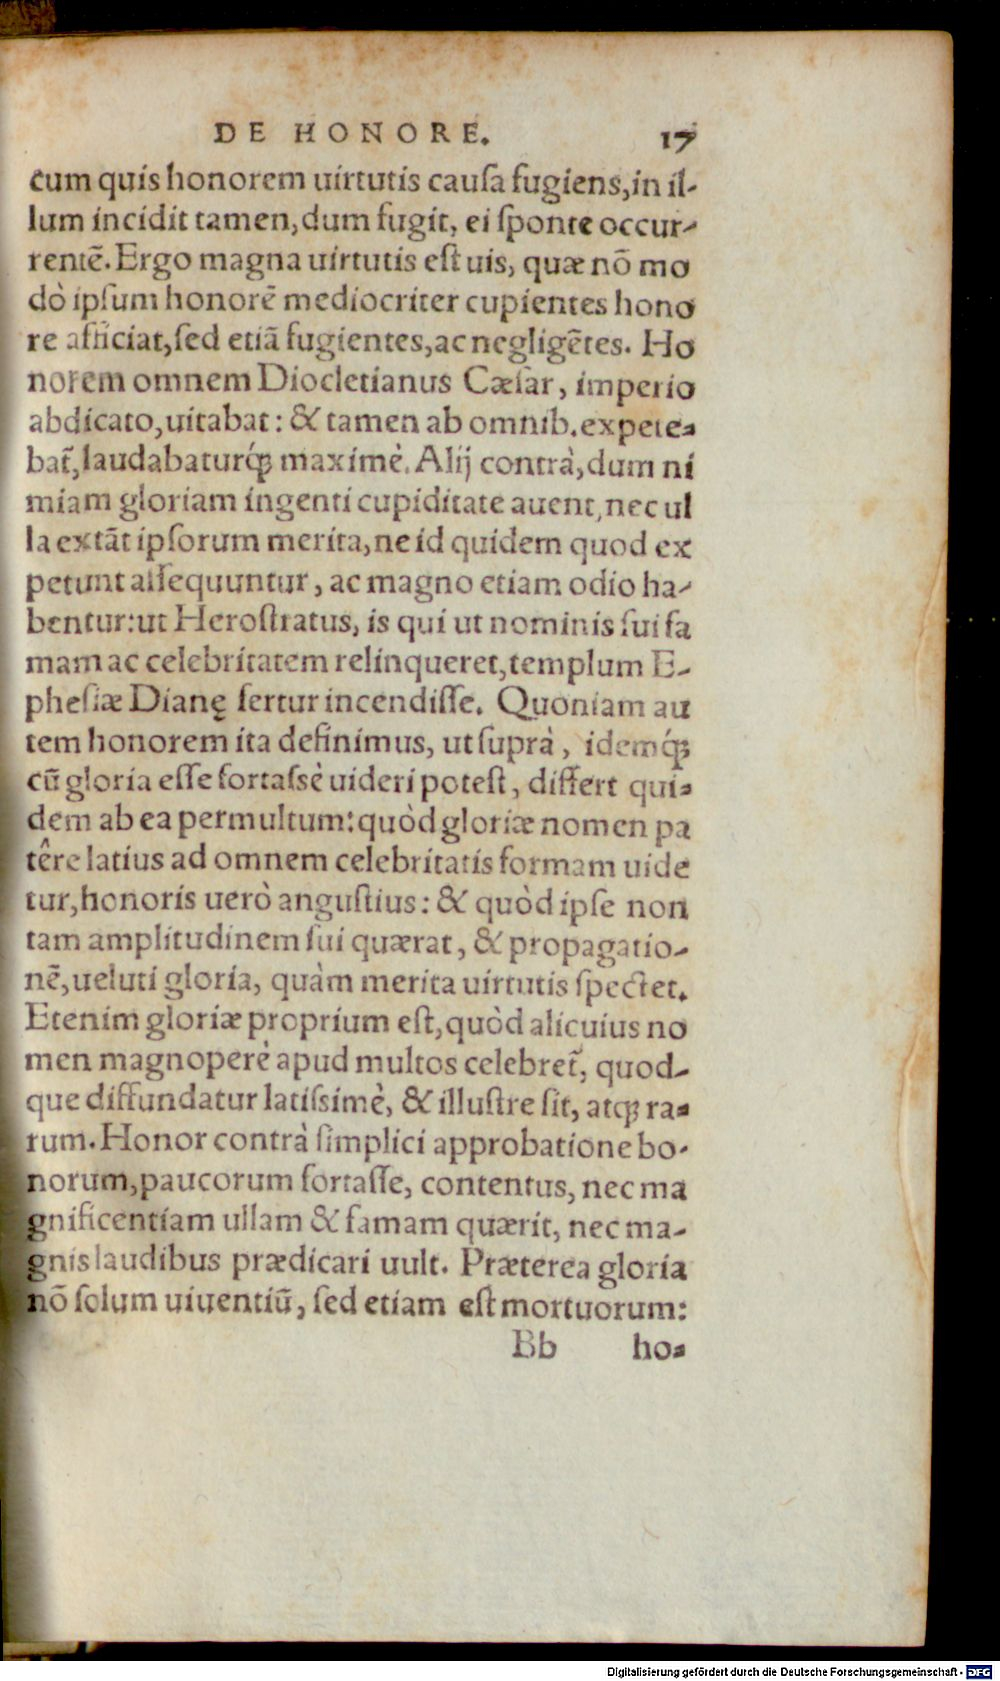 DE HONORE. 17
cum quis honorem uirtutis causa fugiens, in il-
lum incidit tamen, dum fugit, ei sponte occur-
rentē. Ergo magna uirtutis est uis, quæ nō mo
dò ipsum honorē mediocriter cupientes hono
re afficiat, sed etiā fugientes, ac negligētes. Ho
norem omnem Diocletianus Cæsar, imperio
abdicato, uitabat: & tamen ab omnib. expete-
bat̃, laudabaturq́ꝫ maximè. Alij contrà, dum ni
miam gloriam ingenti cupiditate auent, nec ul
la extāt ipsorum merita, ne id quidem quod ex
petunt assequuntur, ac magno etiam odio ha-
bentur: ut Herostratus, is qui ut nominis sui fa
mam ac celebritatem relinqueret, templum E-
phesiæ Dianę fertur incendisse. Quoniam au
tem honorem ita definimus, ut suprà, idemq́ꝫ
cū gloria esse fortassè uideri potest, differt qui-
dem ab ea permultum: quòd gloriæ nomen pa
têre latius ad omnem celebritatis formam uide
tur, honoris uerò angustius: & quòd ipse non
tam amplitudinem sui quærat, & propagatio-
nē, ueluti gloria, quàm merita uirtutis spectet.
Etenim gloriæ proprium est, quòd alicuius no
men magnoperè apud multos celebret̃, quod-
que diffundatur latissimè, & illustre sit, atqꝫ ra-
rum. Honor contrà simplici approbatione bo-
norum, paucorum fortasse, contentus, nec ma
gnificentiam ullam & famam quærit, nec ma-
gnis laudibus prædicari uult. Præterea gloria
nō solum uiuentiū, sed etiam est mortuorum:
Bb ho-
Digitalisierung gefördert durch die Deutsche Forschungsgemeinschaft - DFG